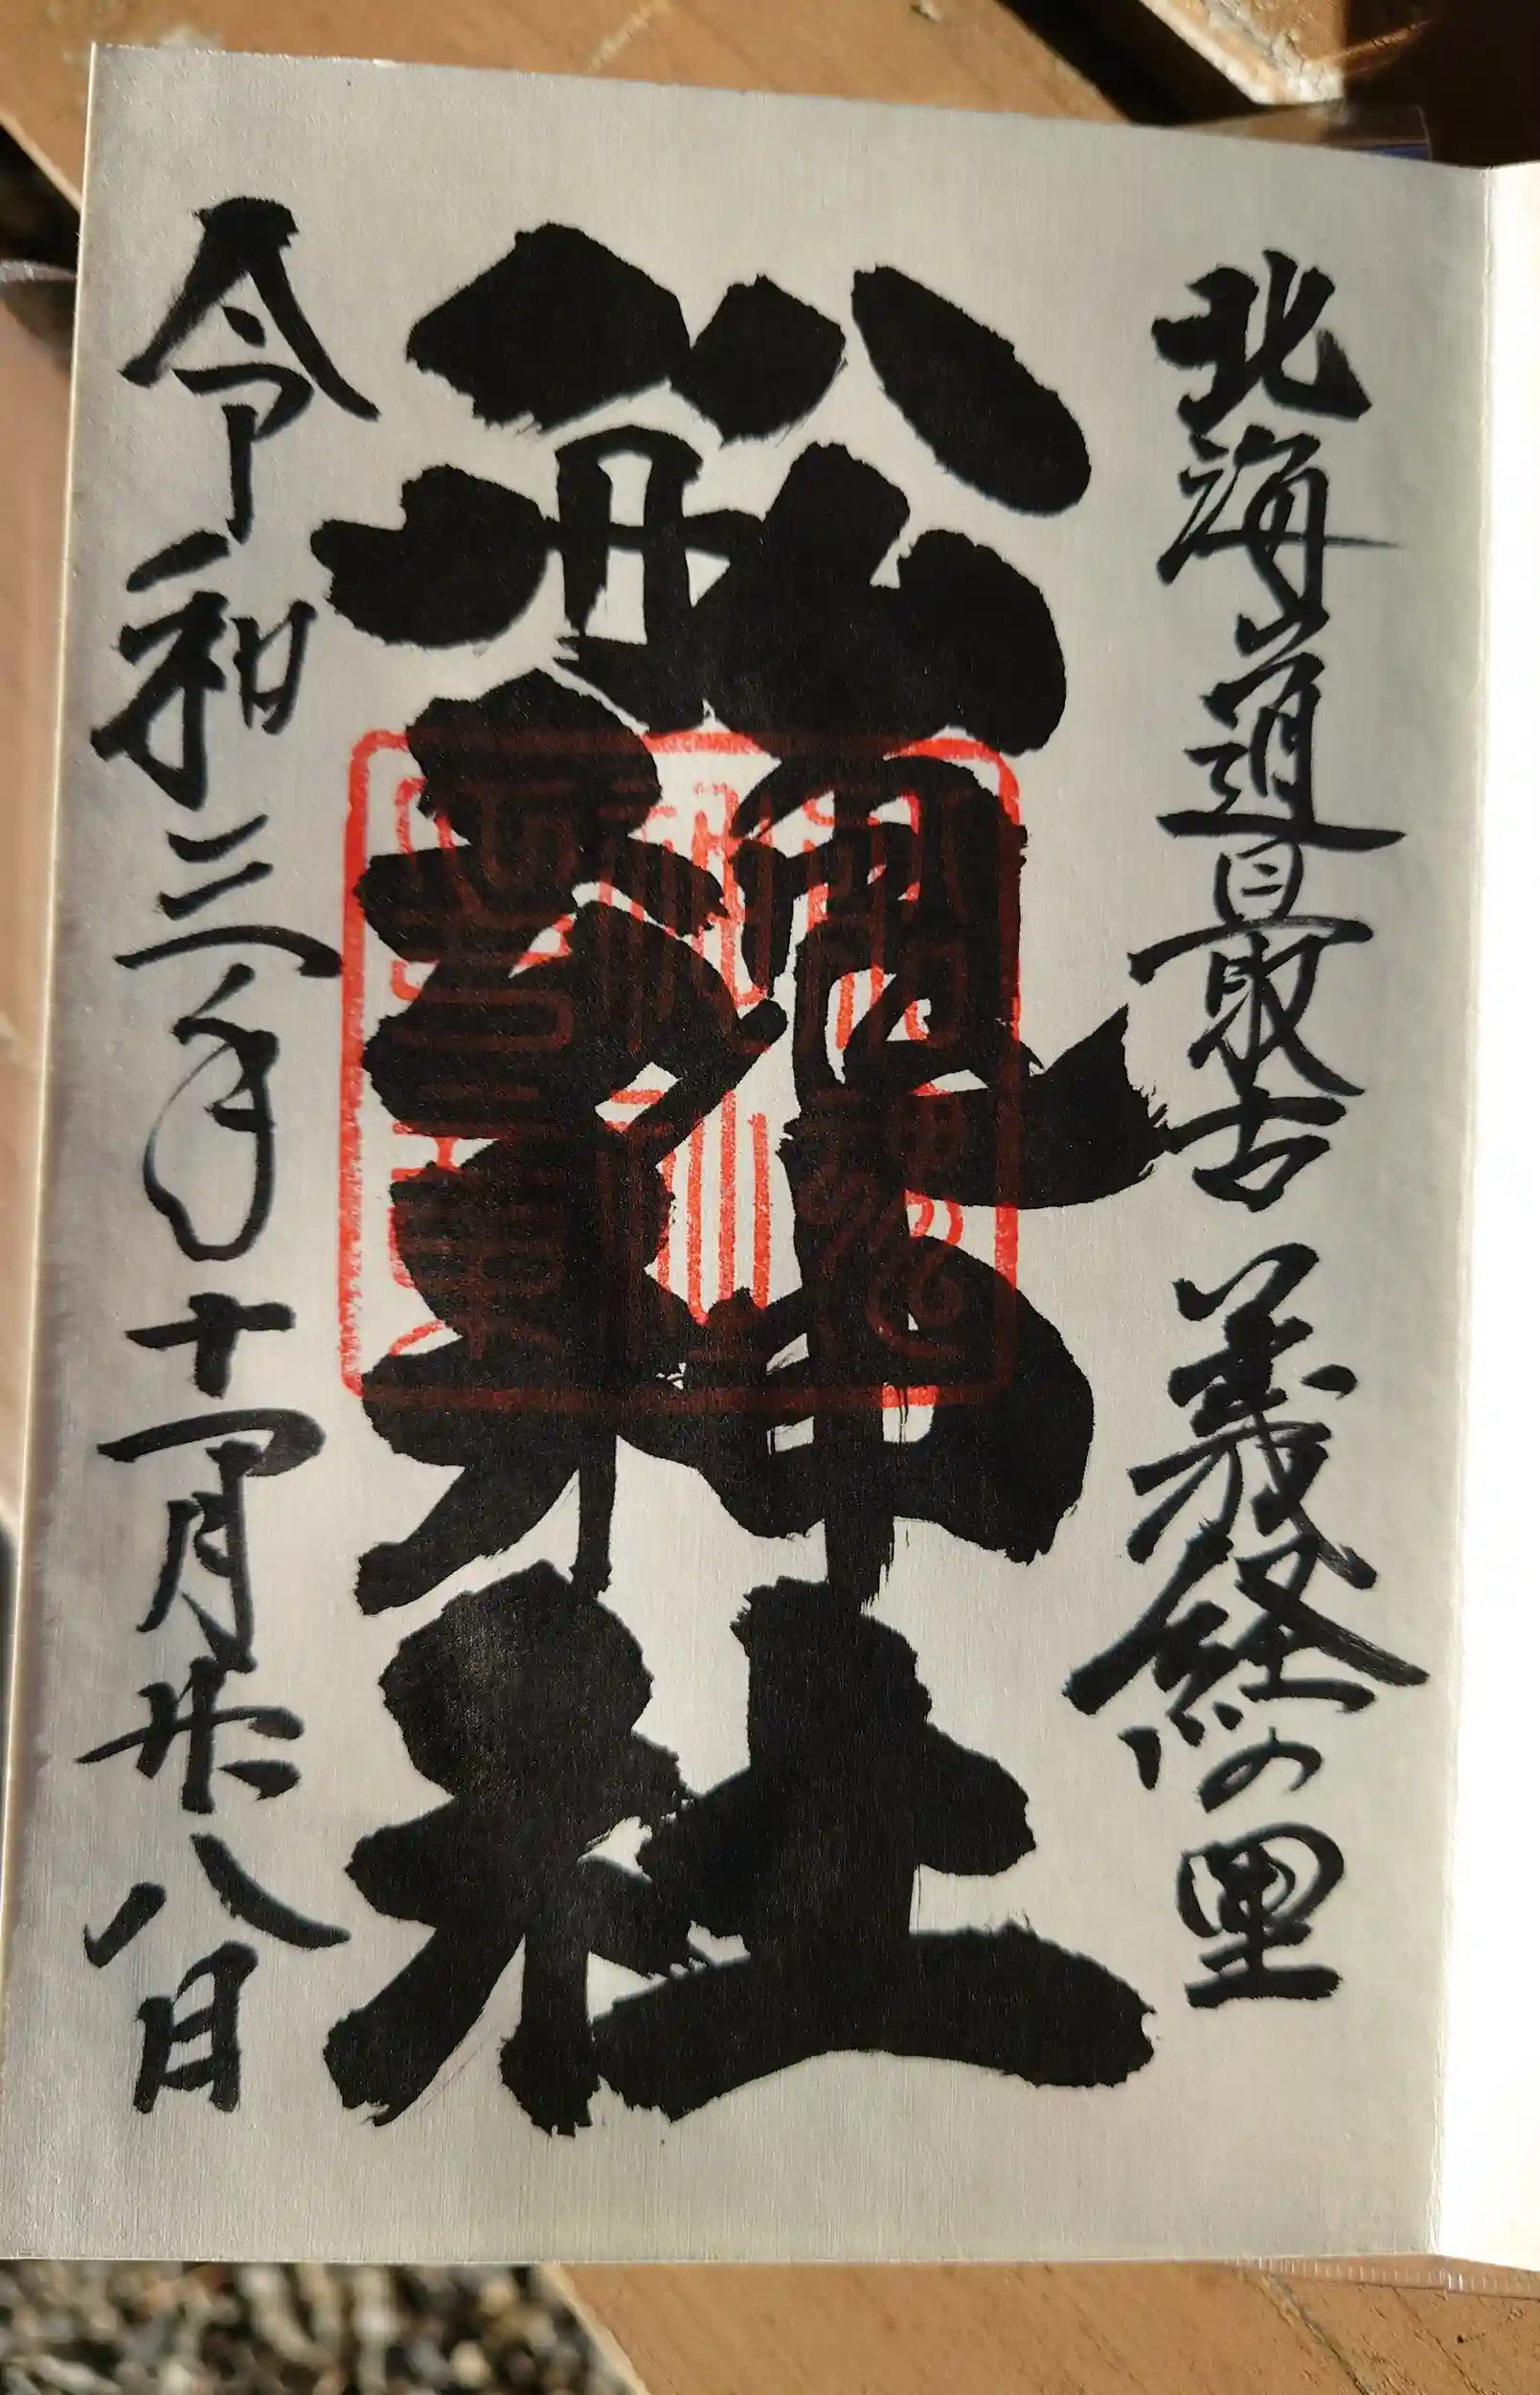 北海道最古 義経の里
船魂神社
令和三年十一月廿八日